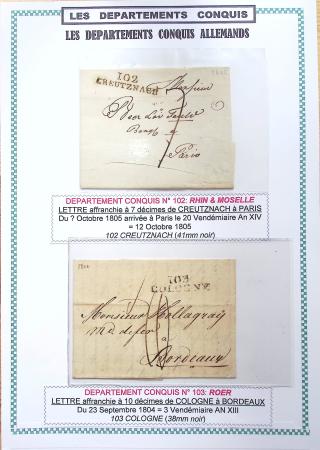 LES DEPARTEMENTS CONQUIS
LES DEPARTEMENTS CONQUIS ALLEMANDS
102
CREUTZNACH
Monsieur
Paris
DEPARTEMENT CONQUIS N° 102: RHIN & MOSELLE
LETTRE affranchie à 7 décimes de CREUTZNACH à PARIS
Du ? Octobre 1805 arrivée à Paris le 20 Vendémiaire An XIV
= 12 Octobre 1805
102 CREUTZNACH (41mm noir)
103
COLOGNE
Monsieur
à
Bordeaux
DEPARTEMENT CONQUIS N° 103: ROER
LETTRE affranchie à 10 décimes de COLOGNE à BORDEAUX
Du 23 Septembre 1804 = 3 Vendémiaire AN XIII
103 COLOGNE (38mm noir)